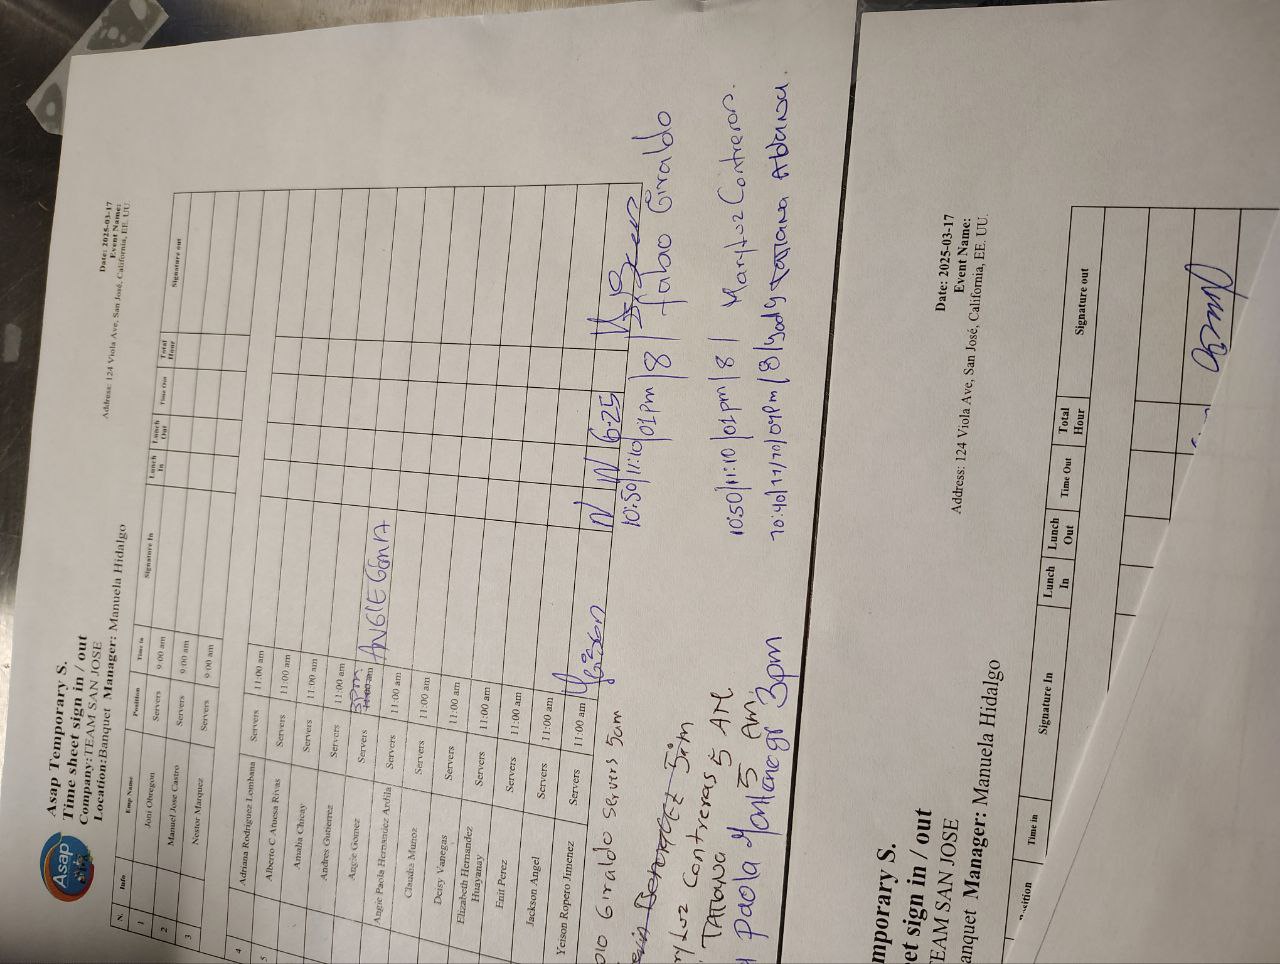 Asap
Asap Temporary S.
Time sheet sign in / out
Company:TEAM SAN JOSE
Location:Banquet Manager: Manuela Hidalgo
Date: 2025-03-17
Event Name:
Address: 124 Viola Ave, San José, California, EE. UU.
N. Info Emp Name Position Time in Signature In Lunch In Lunch Out Time Out Total Hour Signature out
1 Joni Obregon Servers 9:00 am
2 Manuel Jose Castro Servers 9:00 am
3 Nestor Marquez Servers 9:00 am
4 Adriana Rodriguez Lombana Servers 11:00 am
5 Alberto C Atuesa Rivas Servers 11:00 am
Amalia Chicay Servers 11:00 am
Andres Gutierrez Servers 11:00 am
Angie Gomez Servers 11:00 am 3pm ANGIE GOMEZ
Angie Paola Hernandez Ardila Servers 11:00 am
Claudia Munoz Servers 11:00 am
Deisy Vanegas Servers 11:00 am
Elizabeth Hernandez Huayanay Servers 11:00 am
Enit Perez Servers 11:00 am
Jackson Angel Servers 11:00 am
Yeison Ropero Jimenez Servers 11:00 am Yeison N N 6-25
Giraldo servers 5am 10:50 11:10 01pm 8 Fabio Giraldo
5am
Contreras 5 AM 10:50 11:10 01pm 8 Maryluz Contreras.
Tatiana 5 AM. 10:40 11:10 01pm 8 Yordy Tatiana Aldana.
Paola Montenegro 3pm
mporary S.
eet sign in / out
TEAM SAN JOSE
anquet Manager: Manuela Hidalgo
Date: 2025-03-17
Event Name:
Address: 124 Viola Ave, San José, California, EE. UU.
Position Time in Signature In Lunch In Lunch Out Time Out Total Hour Signature out